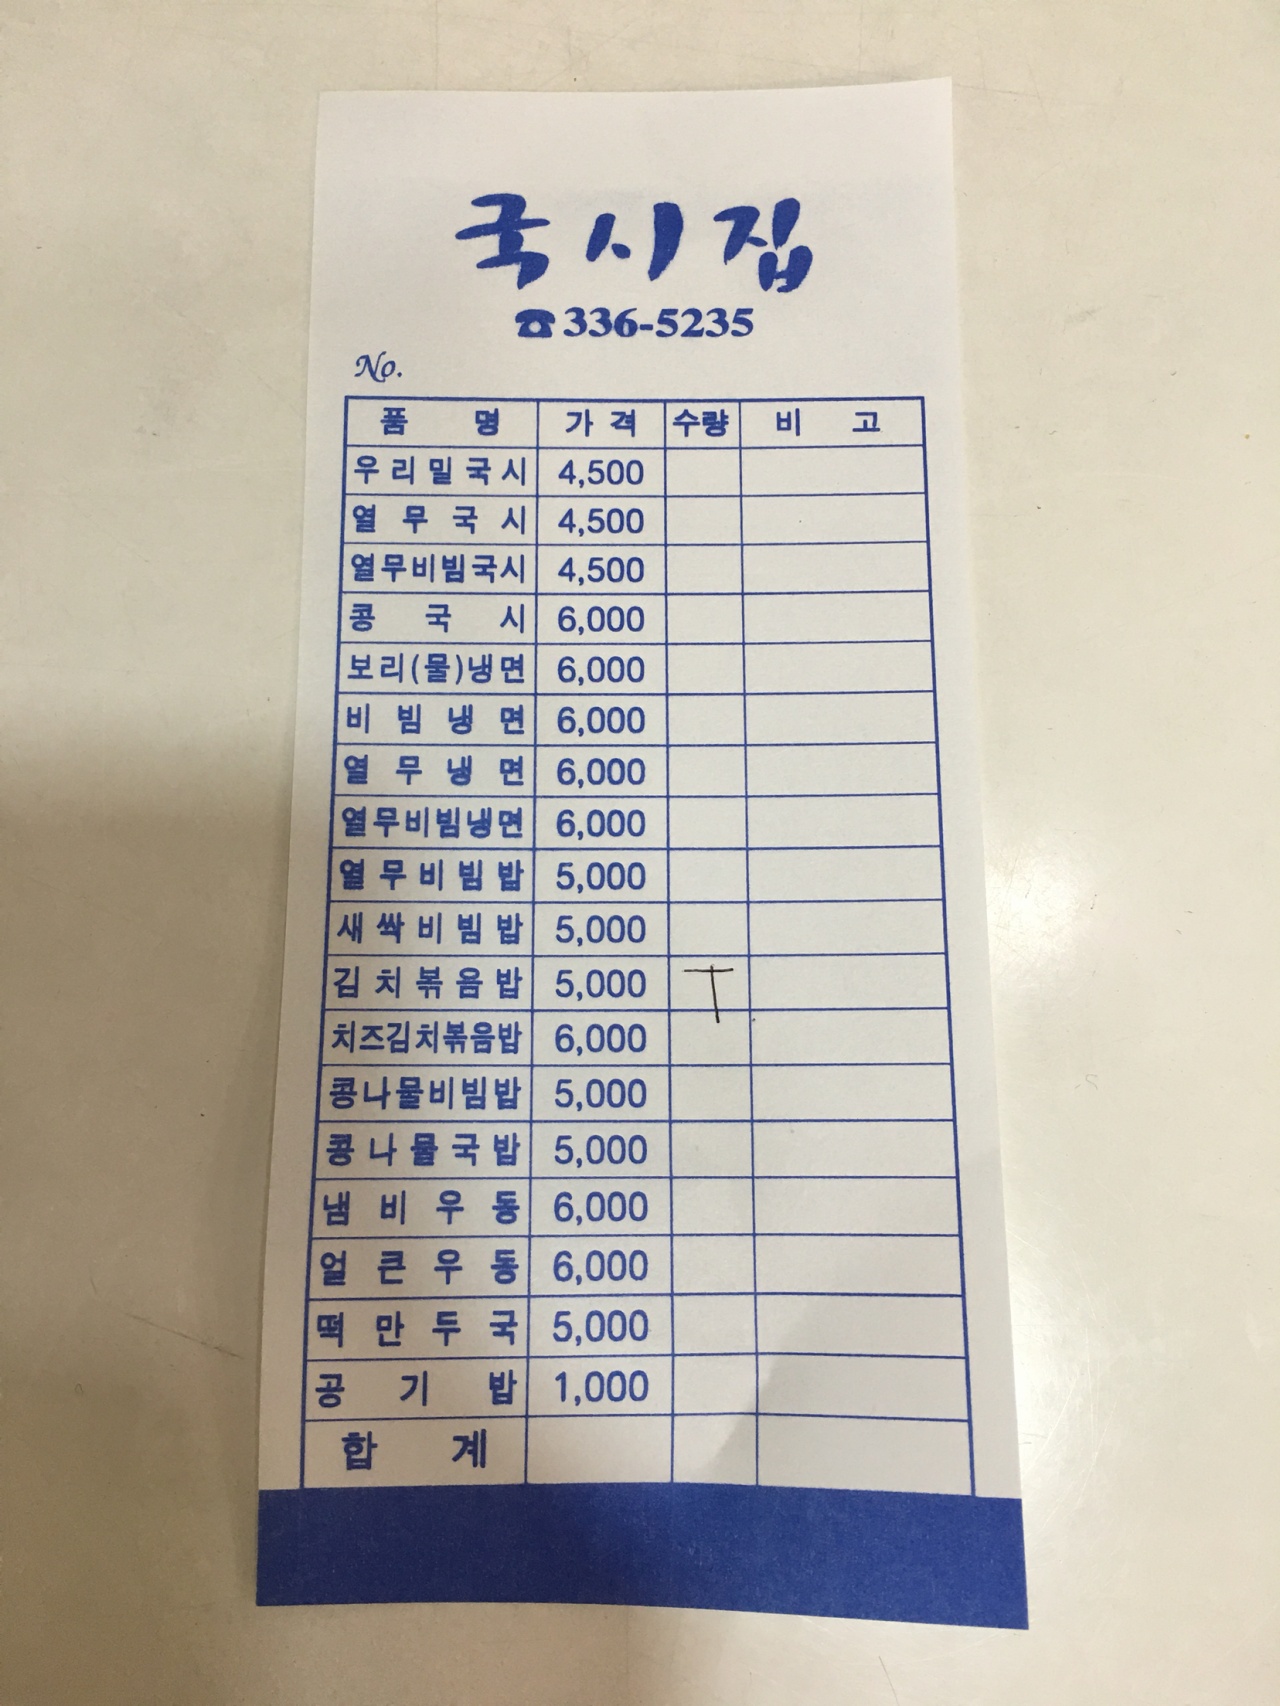 국시집
☎336-5235
No.
품명 가격 수량 비고
우리밀국시 4,500
열무국시 4,500
열무비빔국시 4,500
콩국시 6,000
보리(물)냉면 6,000
비빔냉면 6,000
열무냉면 6,000
열무비빔냉면 6,000
열무비빔밥 5,000
새싹비빔밥 5,000
김치볶음밥 5,000 ㅜ
치즈김치볶음밥 6,000
콩나물비빔밥 5,000
콩나물국밥 5,000
냄비우동 6,000
얼큰우동 6,000
떡만두국 5,000
공기밥 1,000
합계